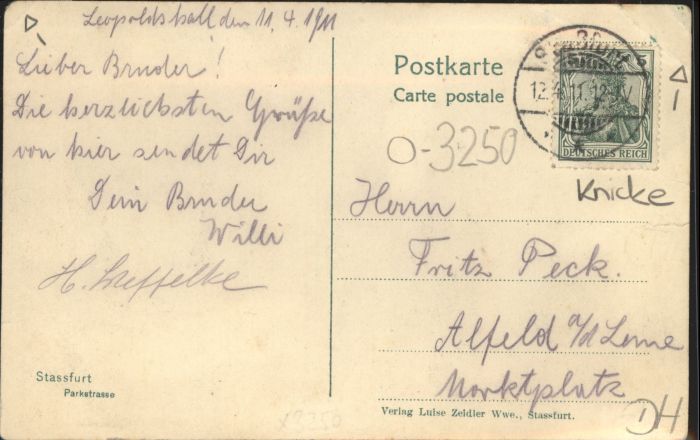 Leopoldshall den 11.4.1911
Lieber Bruder!
Die herzlichsten Grüße
von hier sendet Dir
Dein Bruder
Willi
H.
Stassfurt
Parkstrasse
Postkarte
Carte postale
12.4.11.12-1
DEUTSCHES REICH
0-3250
Knicke
Herrn
Fritz Peck.
Alfeld a/d Leine
Marktplatz
Verlag Luise Zeidler Wwe., Stassfurt.
DH